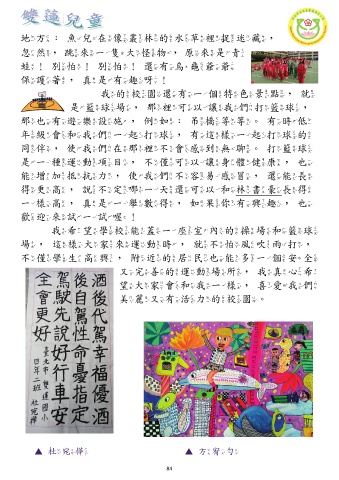 雙蓮兒童
地方：魚兒在像叢林的水草裡捉迷藏，
忽然，跳來一隻大怪物，原來是青
蛙！別怕！別怕！還有烏龜爺爺
保護著，真是有趣呀！
我的校園還有一個特色景點，就
是籃球場，那裡可以讓我們打籃球，
那也有遊樂設施，例如：吊橋等等。有時低
年級會和我們一起打球，有這樣一起打球的
同伴，使我們在那裡不會感到無聊。打籃球
是一種運動項目，不僅可以讓身體健康，也
能增加抵抗力，使我們不容易感冒，還能長
得更高，說不定哪一天還可以和林書豪長得
一樣高，真是一舉數得，如果你有興趣，也
歡迎來試一試喔！
我希望學校能蓋一座室內的操場和籃球
場，這樣大家來運動時，就不怕風吹雨打，
不僅學生高興，附近的居民也能多一個安全
又完善的運動場所，我真心希
望大家會和我一樣，喜愛我們
美麗又有活力的校園。
酒後代駕幸福優酒
後自駕性命憂指定
駕駛先說好行車安
全會更好
臺北市雙蓮國小
四年二班 杜宛樺
▲ 杜宛樺
▲ 方宥勻
84